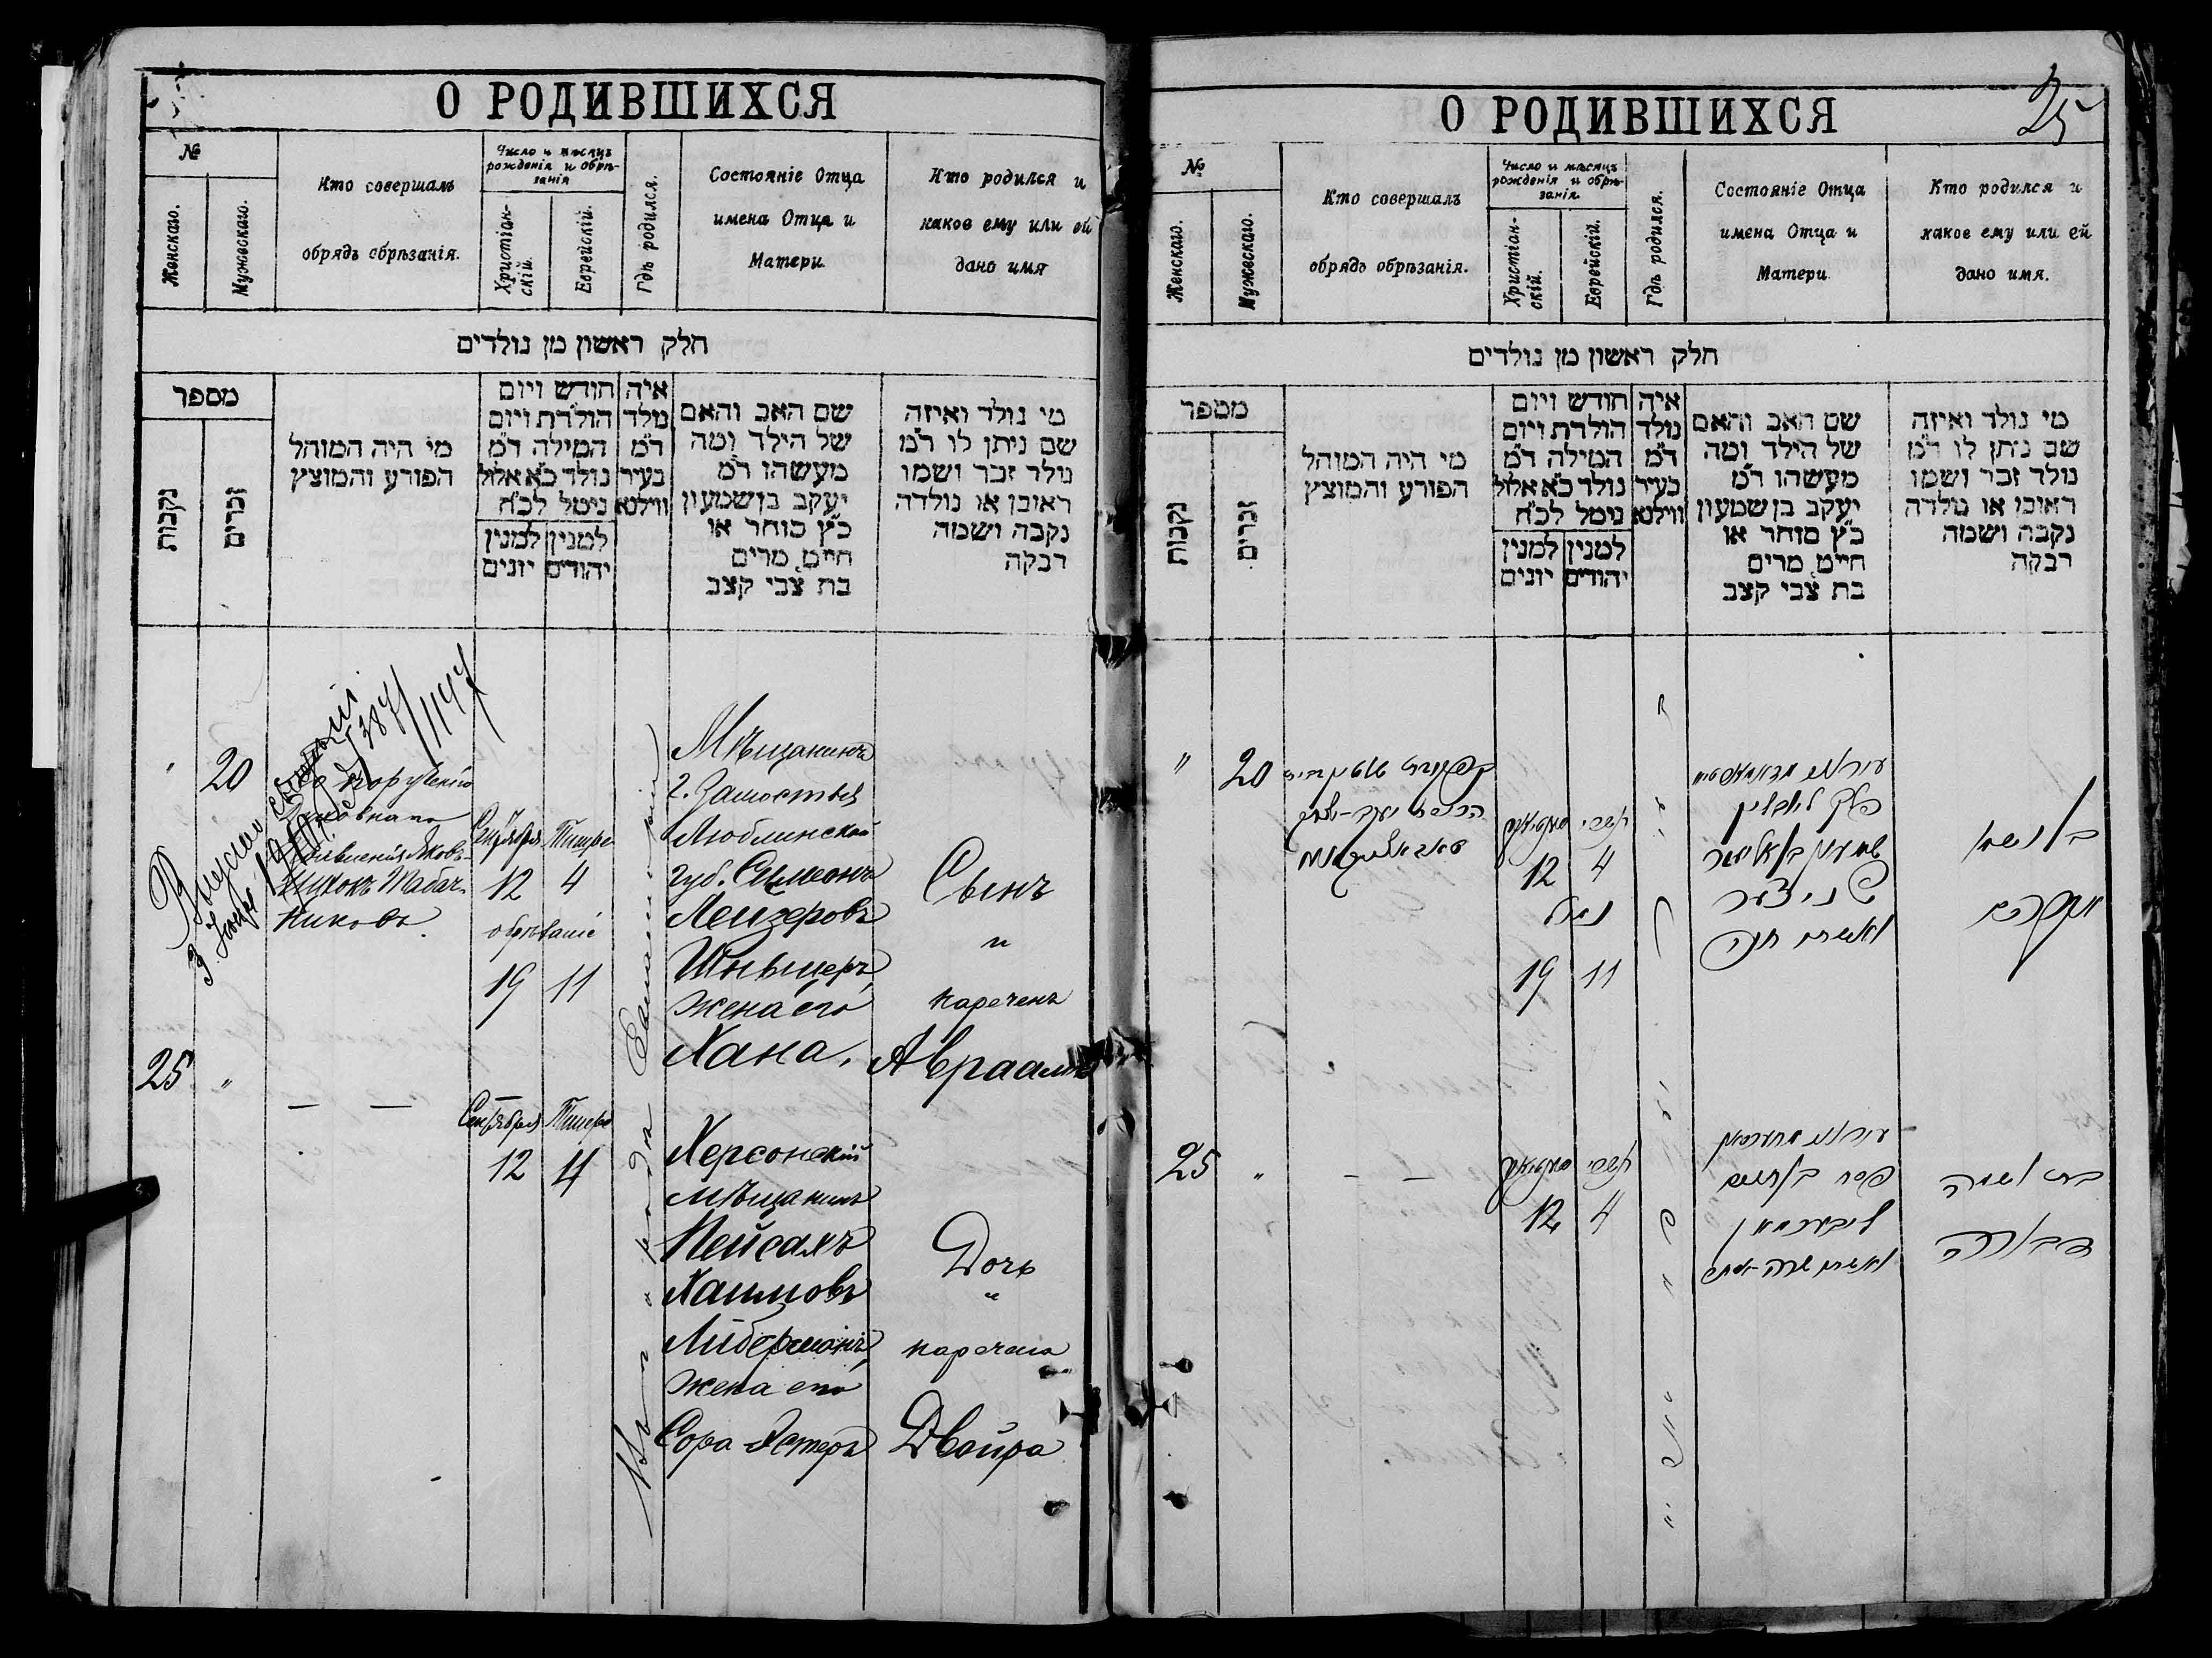 О РОДИВШИХСЯ
№
Женскаго.
Мужескаго.
Кто совершалъ
обрядъ обрѣзанія.
Число и мѣсяцъ
рожденія и обрѣ-
занія
Христіан-
скій.
Еврейскій.
Гдѣ родился.
Состояніе Отца
имена Отца и
Матери
Кто родился и
какое ему или ей
дано имя
חלק ראשון מן נולדים
מספר
נקבות
זכרים
מי היה המוהל
הפורע והמוצץ
חודש ויום
הולדת ויום
המילה ד״מ
נולד כ״א אלול
נימל לכ״ח
למנין
יהודים
למנין
יונים
איה
נולד
ד״מ
בעיר
ווילנא
שם האב והאם
של הילד ומה
מעשהו ד״מ
יעקב בן שמעון
כ״ץ סוחר או
חייט מרים
בת צבי קצב
מי נולד ואיזה
שם ניתן לו ד״מ
נולד זכר ושמו
ראובן או נולדה
נקבה ושמה
רבקה
20
Сентября Тишре
12 4
обрѣзаніе
19 11
Мѣщанинъ
г. Замостья
Люблинской
губ. Симеонъ
Лейзеровъ
Шницеръ,
жена его
Хана.
Сынъ
"
нареченъ
Авраамъ
25 "
— —
Сентября Тишре
12 4
Херсонскій
мѣщанинъ
Пейсахъ
Хаимовъ
Либерманъ,
жена его
Сора-Эстеръ
Дочь
"
наречена
Двойра
25
О РОДИВШИХСЯ
№
Женскаго.
Мужескаго.
Кто совершалъ
обрядъ обрѣзанія.
Число и мѣсяцъ
рожденія и обрѣ-
занія.
Христіан-
скій.
Еврейскій.
Гдѣ родился.
Состояніе Отца
имена Отца и
Матери
Кто родился и
какое ему или ей
дано имя.
חלק ראשון מן נולדים
מספר
נקבות
זכרים
מי היה המוהל
הפורע והמוצץ
חודש ויום
הולדת ויום
המילה ד״מ
נולד כ״א אלול
נימל לכ״ח
למנין
יהודים
למנין
יונים
איה
נולד
ד״מ
בעיר
ווילנא
שם האב והאם
של הילד ומה
מעשהו ד״מ
יעקב בן שמעון
כ״ץ סוחר או
חייט מרים
בת צבי קצב
מי נולד ואיזה
שם ניתן לו ד״מ
נולד זכר ושמו
ראובן או נולדה
נקבה ושמה
רבקה
" 20
תשרי
12 4
נימול
19 11
פלך לובלין
שמעון בן אליעזר
שניצער
ואשתו חנה
בן ושמו
אברהם
25 "
— —
תשרי
12 4
פסח בן חיים
ליבערמאן
ואשתו שרה-אסתר
בת ושמה
דבורה